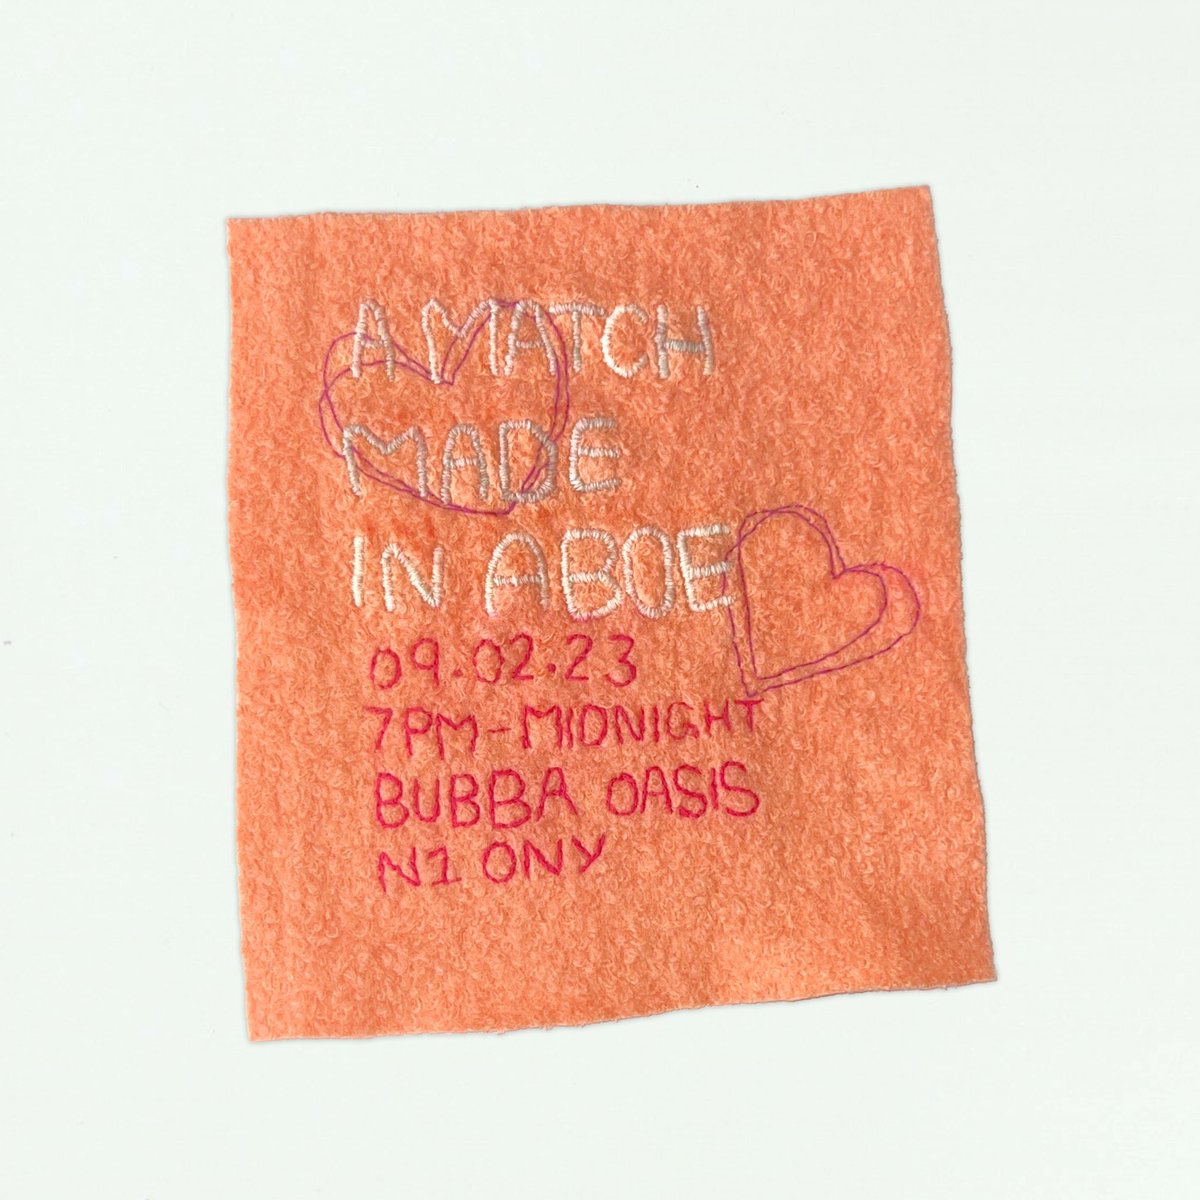 A MATCH
MADE
IN ABOE
09.02.23
7PM-MIDNIGHT
BUBBA OASIS
N1 0NY